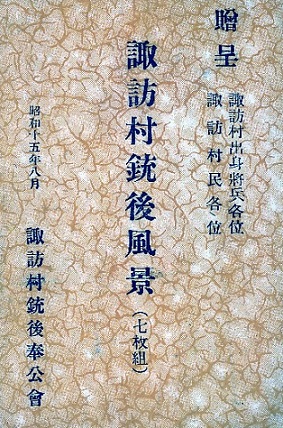 贈呈
諏訪村出身将兵各位
諏訪村民各位
諏訪村銃後風景
(七枚組)
昭和十五年八月
諏訪村銃後奉公會